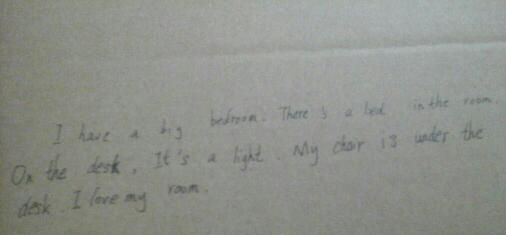 I have a big bedroom. There's a bed in the room.
On the desk, It's a light. My chair is under the
desk. I love my room.